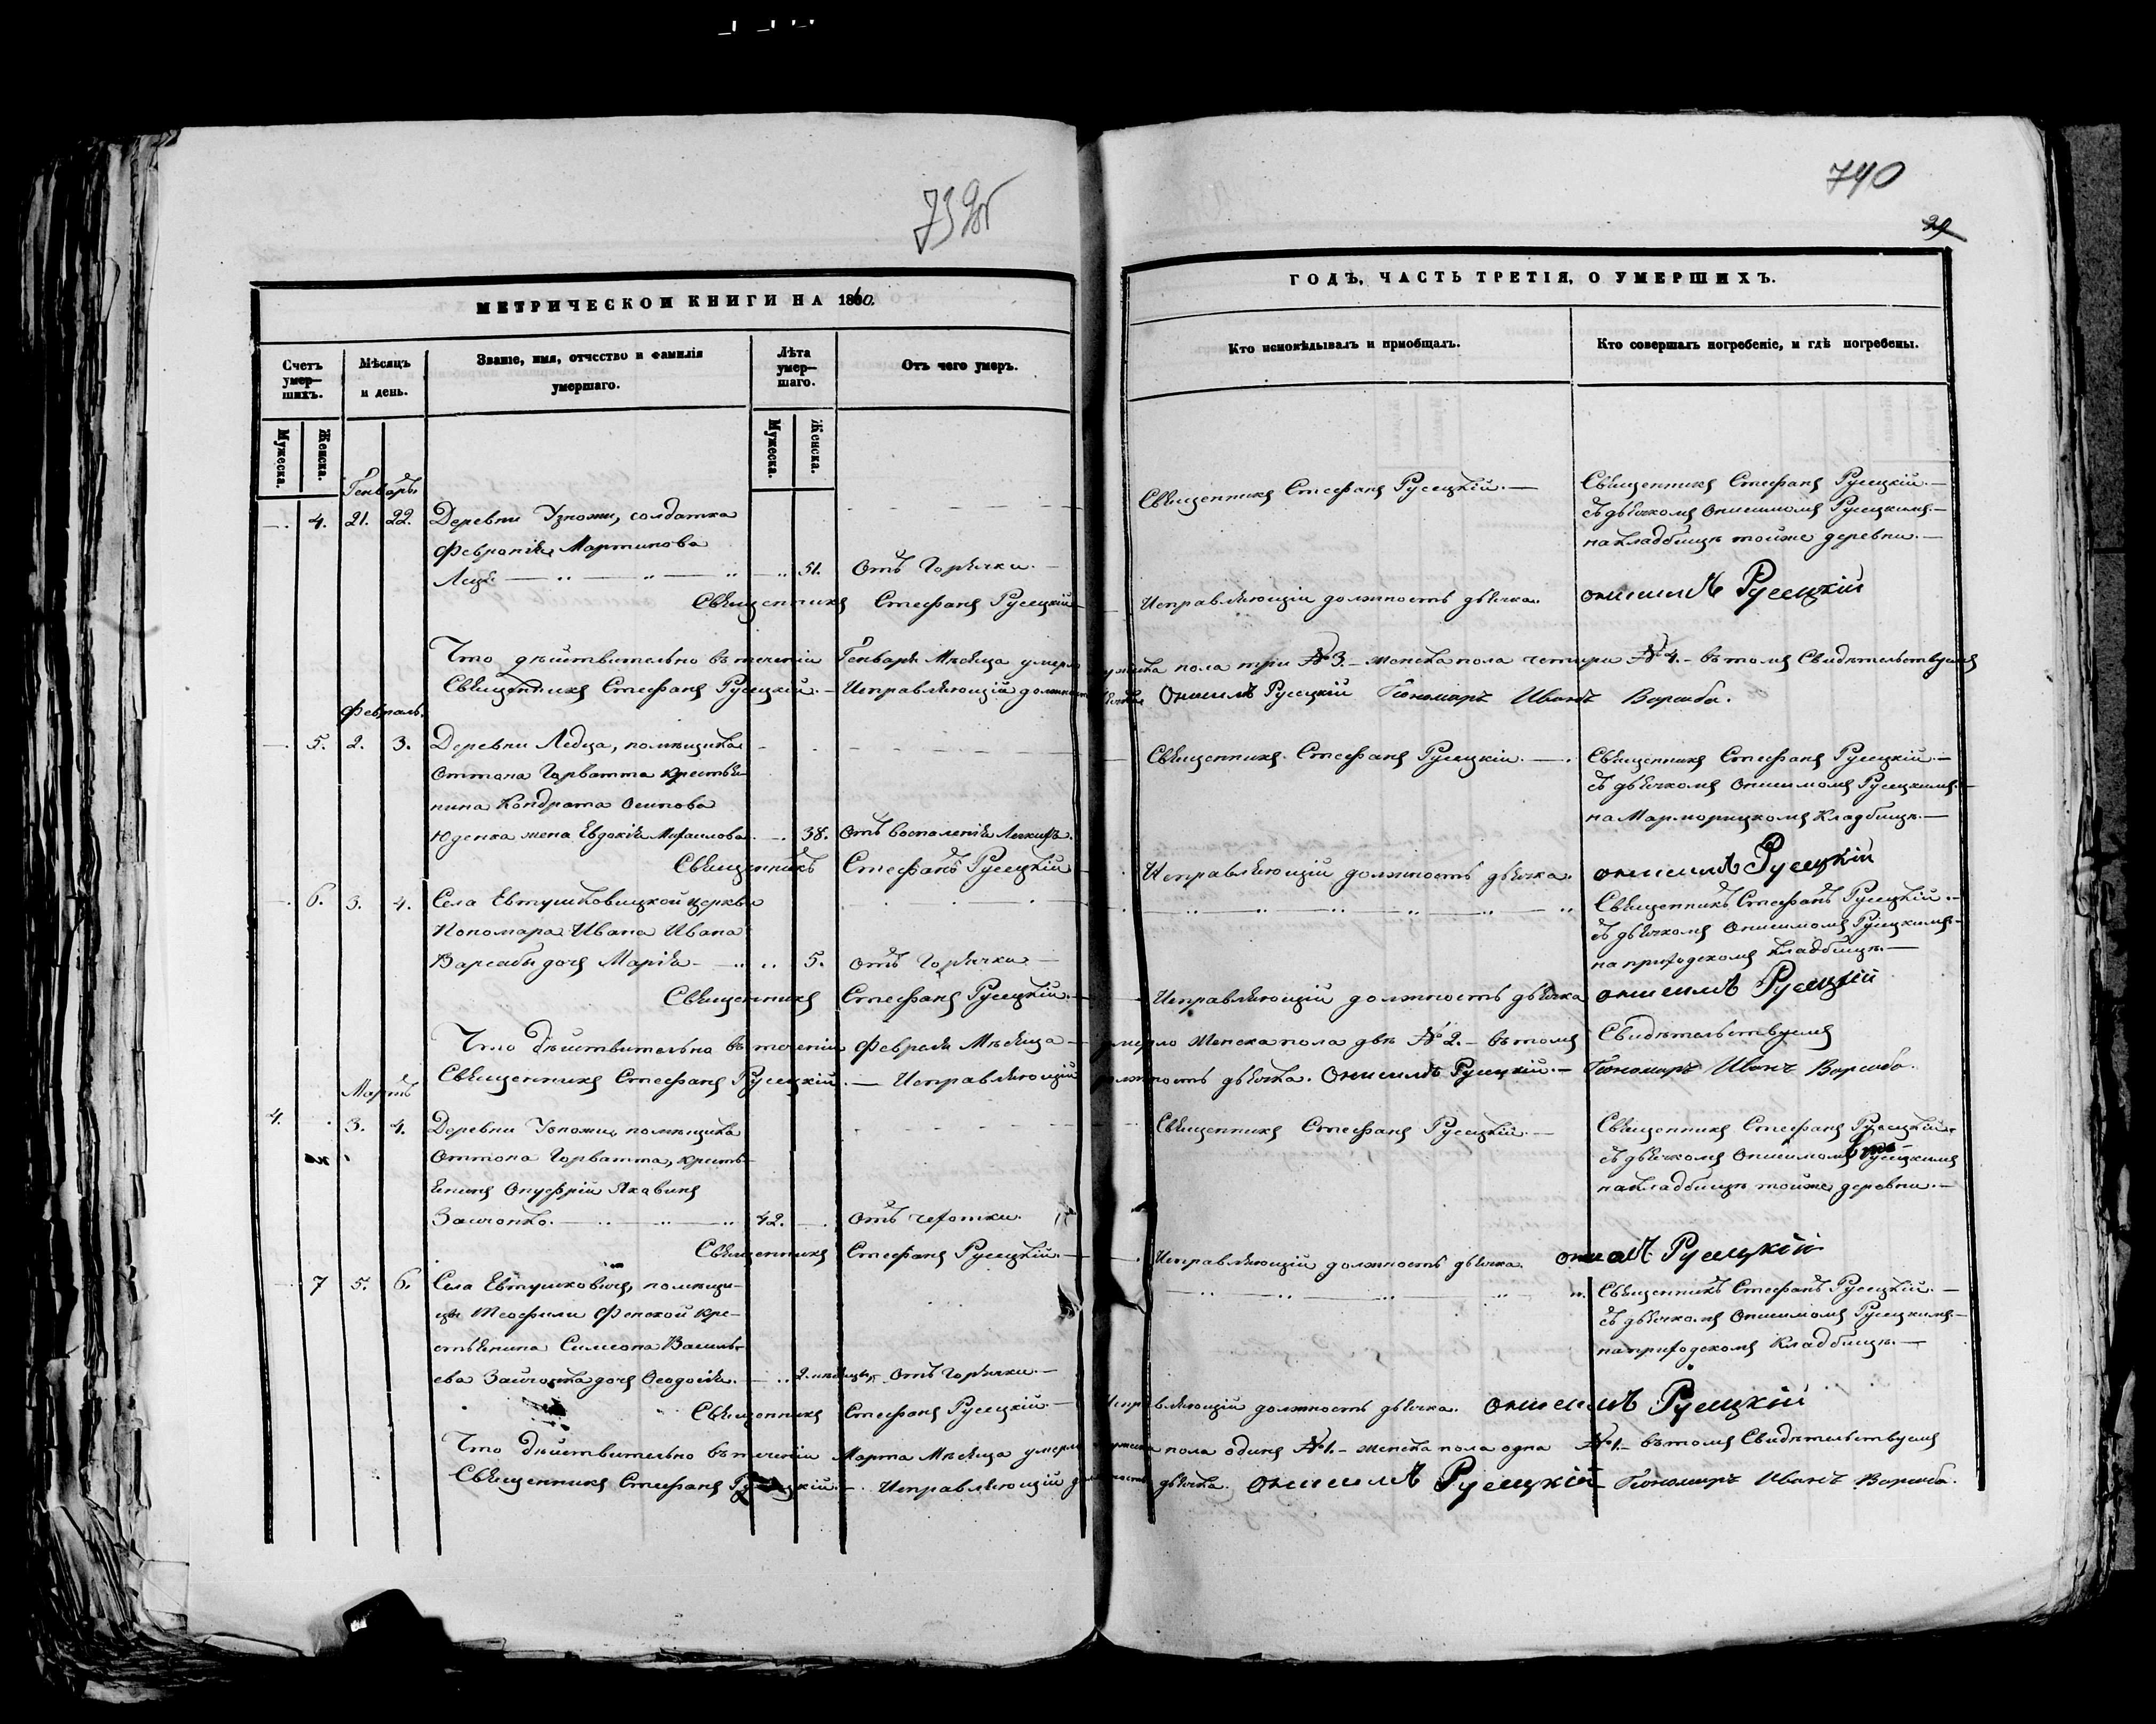 739об
740
29
МЕТРИЧЕСКОЙ КНИГИ НА 1860.
ГОДЪ, ЧАСТЬ ТРЕТІЯ, О УМЕРШИХЪ.
Счетъ умер—шихъ.
Мѣсяцъ и день.
Званіе, имя, отчество и фамилія умершаго.
Лѣта умер—шаго.
Отъ чего умеръ.
Кто исповѣдывалъ и пріобщалъ.
Кто совершалъ погребеніе, и гдѣ погребены.
Мужеска.
Женска.
Мужеска.
Женска.
Генварь
4. 21. 22. Деревни Узножи, солдатка
Февронія Мартинова
51. Отъ Горячки.
Священникъ Стефанъ Русецкій.
Священникъ Стефанъ Русецкій.
съ дьячкомъ Онисимомъ Русецкимъ.
на кладбищѣ тойже деревни.
Священникъ Стефанъ Русецкій
Исправляющій должность дьячка Онисимъ Русецкій
Что дѣйствительно въ теченіи Генваря Мѣсяца умерло мужеска пола три №3. женска пола четыри №4. въ томъ Свидѣтельствуемъ
Священникъ Стефанъ Русецкій. Исправляющій должность дьячка Онисимъ Русецкій Пономарь Иванъ Варсаба.
Февраль.
5. 2. 3. Деревни Ледца, помѣщика
Оттона Горватта крестья-
нина Кондрата Осипова
Юденка жена Евдокія Михаилова. 38. Отъ воспаленія Легкихъ.
Священникъ Стефанъ Русецкій.
Священникъ Стефанъ Русецкій.
съ дьячкомъ Онисимомъ Русецкимъ.
на кладбищѣ.
Священникъ Стефанъ Русецкій
Исправляющій должность дьячка Онисимъ Русецкій
6. 3. 4. Села Евтушковицкой церкви
Пономара Ивана Ивана
Варсабы дочь Марія 5. Отъ Горячки
Священникъ Стефанъ Русецкій.
съ дьячкомъ Онисимомъ Русецкимъ.
на приходскомъ кладбищѣ.
Священникъ Стефанъ Русецкій.
Исправляющій должность дьячка Онисимъ Русецкій
Что дѣйствительно въ теченіи Февраля Мѣсяца умерло женска пола двѣ №2. въ томъ Свидѣтельствуемъ
Священникъ Стефанъ Русецкій. Исправляющій должность дьячка. Онисимъ Русецкій. Пономарь Иванъ Варсаба.
Мартъ
4. 3. 4. Деревни Узножи, помѣщика
Оттона Горватта, кресть-
янинъ Онуфрій Якавинъ
Заичонко. 42. Отъ чехотки.
Священникъ Стефанъ Русецкій.
Священникъ Стефанъ Русецкій.
съ дьячкомъ Онисимомъ Русецкимъ
на кладбищѣ тойже деревни.
Священникъ Стефанъ Русецкій.
Исправляющій должность дьячка. Русецкій
7 5. 6. Села Евтушковичъ, помѣщи-
цы Теофили Фенской кре-
стьянина Симеона Василь-
ева Заичонка дочь Феодосія. 2. мѣсяцъ. Отъ Горячки.
Священникъ Стефанъ Русецкій.
съ дьячкомъ Онисимомъ Русецкимъ
на приходскомъ кладбищѣ.
Священникъ Стефанъ Русецкій.
Исправляющій должность дьячка. Онисимъ Русецкій
Что дѣйствительно въ теченіи Марта Мѣсяца умерло мужеска пола одинъ №1. женска пола одна №1. въ томъ Свидѣтельствуемъ
Священникъ Стефанъ Русецкій. Исправляющій должность дьячка. Онисимъ Русецкій Пономарь Иванъ Варсаба.